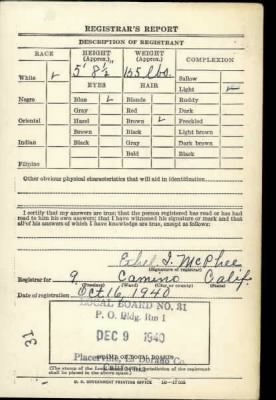 REGISTRAR'S REPORT
DESCRIPTION OF REGISTRANT
RACE HEIGHT (Approx.) WEIGHT (Approx.) COMPLEXION
White ✓ 5' 8½ 155 lbs. Sallow
EYES HAIR Light ✓
Negro Blue ✓ Blonde Ruddy
Gray Red Dark
Oriental Hazel Brown ✓ Freckled
Brown Black Light brown
Indian Black Gray Dark brown
Bald Black
Filipino
Other obvious physical characteristics that will aid in identification
I certify that my answers are true; that the person registered has read or has had
read to him his own answers; that I have witnessed his signature or mark and that
all of his answers of which I have knowledge are true, except as follows:
Ethel I. McPhee
(Signature of registrar)
Registrar for 9 Camino Calif.
(Precinct) (Ward) (City or county) (State)
Date of registration Oct 16, 1940
LOCAL BOARD NO. 31
P. O. Bldg. Rm 1
DEC 9 1940
Placerville, El Dorado Co.
California
31
(The stamp of the Local Board having jurisdiction of the registrant
shall be placed in the above space.)
U. S. GOVERNMENT PRINTING OFFICE